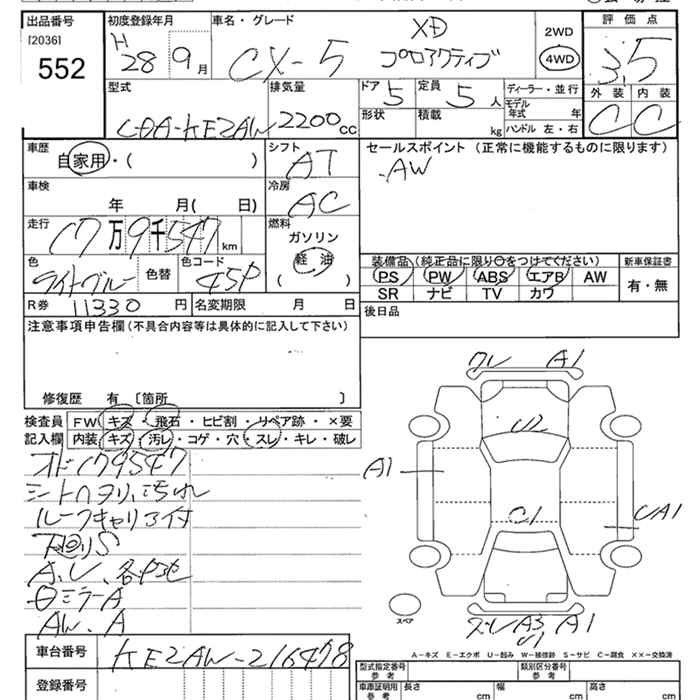 出品番号 初度登録年月 車名・グレード 評価点
[2036] H 28 9月 CX-5 XD プロアクティブ 2WD 4WD 3.5
552
外装 内装
C C
型式 排気量 ドア 5 定員 5 人 ディーラー・並行
LDA-KE2AW 2200cc 形状 積載 kg モデル年式 年
ハンドル 左・右
車歴 シフト セールスポイント (正常に機能するものに限ります)
自家用・( ) AT AW
車検 冷房
年 月( 日) AC
走行 燃料
17万9千547km ガソリン
軽油
( )
色 色替 色コード
ライトブルー 45P
装備品(純正品に限り○をつけてください) 新車保証書
PS PW ABS エアB AW 有・無
SR ナビ TV カワ
R券 11330 円 名変期限 月 日
後日品
注意事項申告欄(不具合内容等は具体的に記入して下さい)
修復歴 有 [箇所 ]
検査員記入欄 FW キズ・飛石・ヒビ割・リペア跡・×要
内装 キズ・汚レ・コゲ・穴・スレ・キレ・破レ
オド179547
シートヘタリ、汚れ
ルーフキャリア付
下回りS
A、U、各所
ミラーA
AW、A
ワレ A1
U2
A1
C1
UA1
A3 A1
U1
スペア
A-キズ E-エクボ U-凹み W-補修跡 S-サビ C-腐食 ××-交換済
車台番号 KE2AW-216478
登録番号
型式指定番号 参考 類別区分番号 参考
車庫証明用 参考 長さ cm 幅 cm 高さ cm